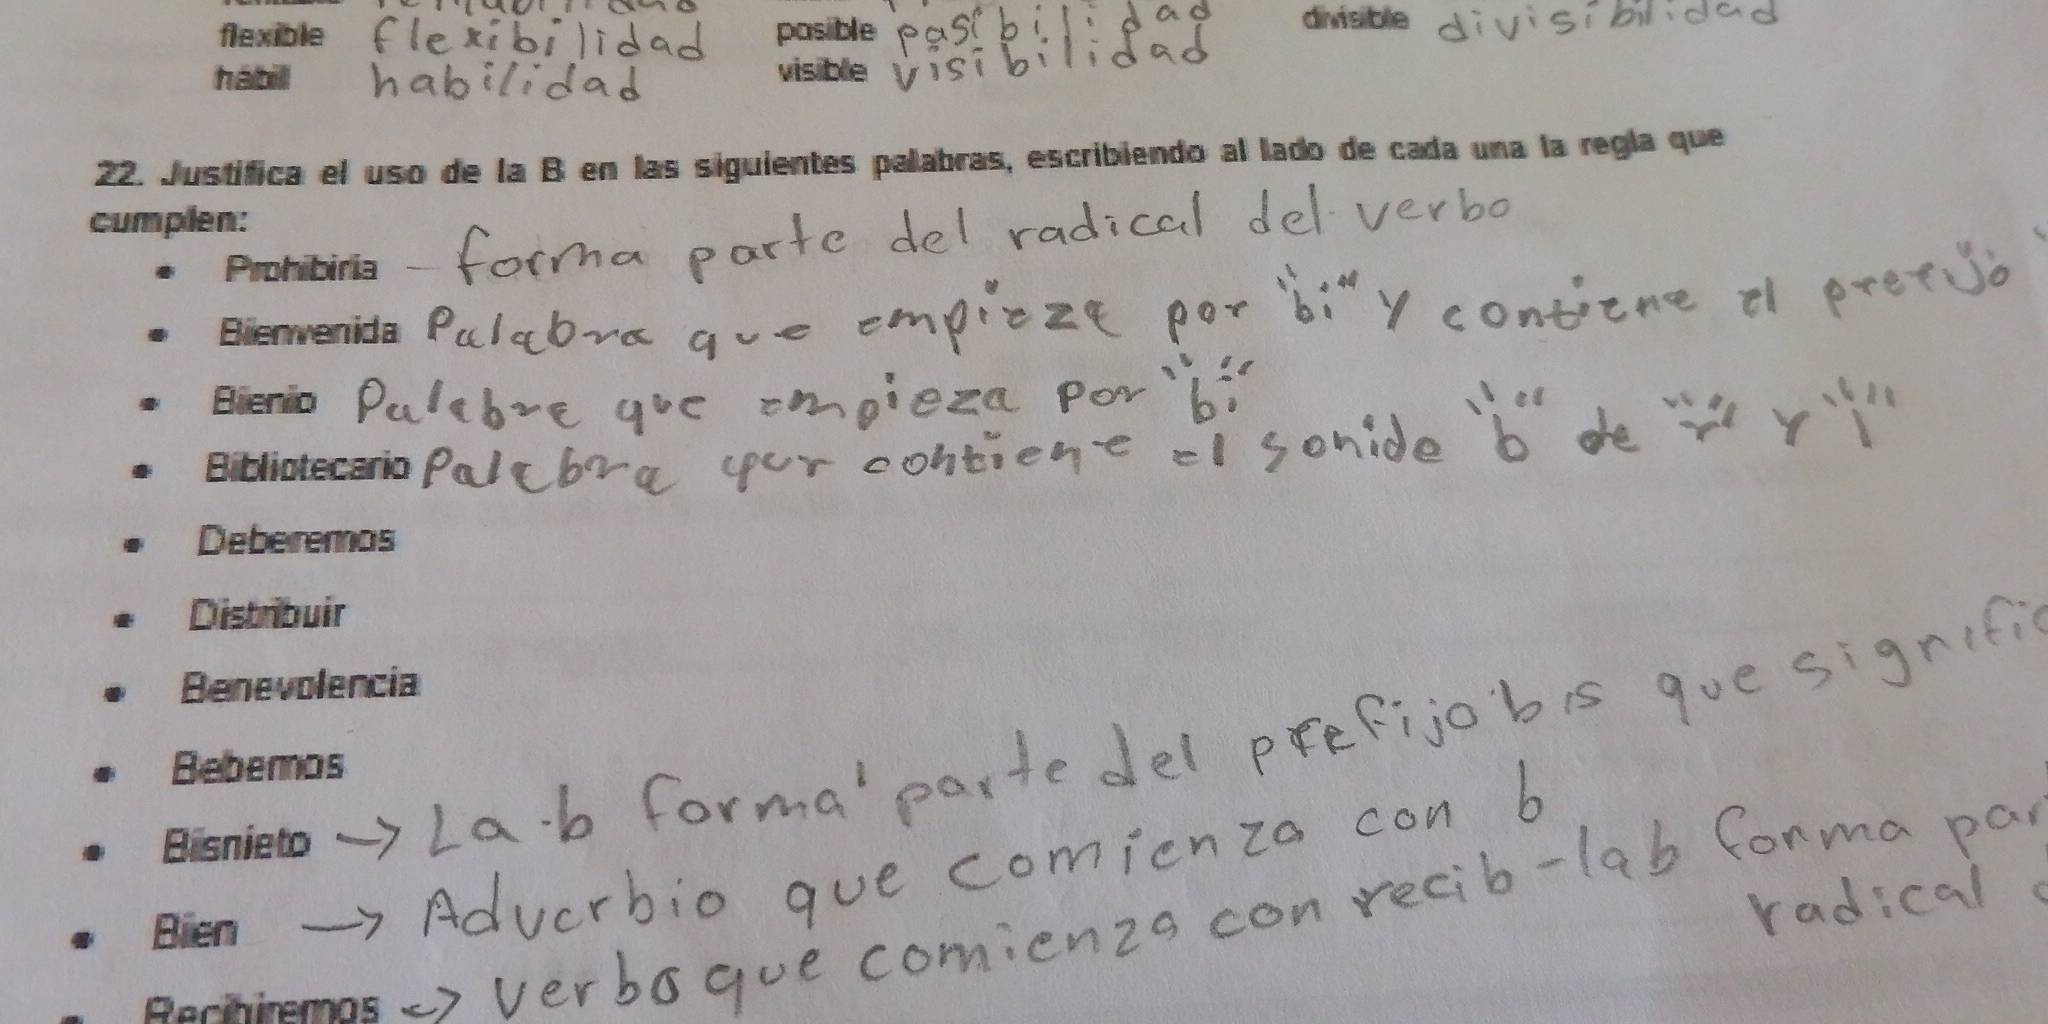 flexible flexibilidad posible posibilidad divisible divisibilidad
hábil habilidad visible visibilidad
22. Justifica el uso de la B en las siguientes palabras, escribiendo al lado de cada una la regla que
cumplen:
• Prohibiría - forma parte del radical del verbo
• Bienvenida Palabra que empieza por "bi" y contiene el prefijo
• Bienio Palabra que empieza por "bi"
• Bibliotecario Palabra que contiene el sonido "b" de "r" y "l"
• Deberemos
• Distribuir
• Benevolencia
• Bebemos
• Bisnieto → La b forma parte del prefijo bis que signific
• Bien → Adverbio que comienza con b
• Recibiremos → verbo que comienza con recib - la b forma par
radical